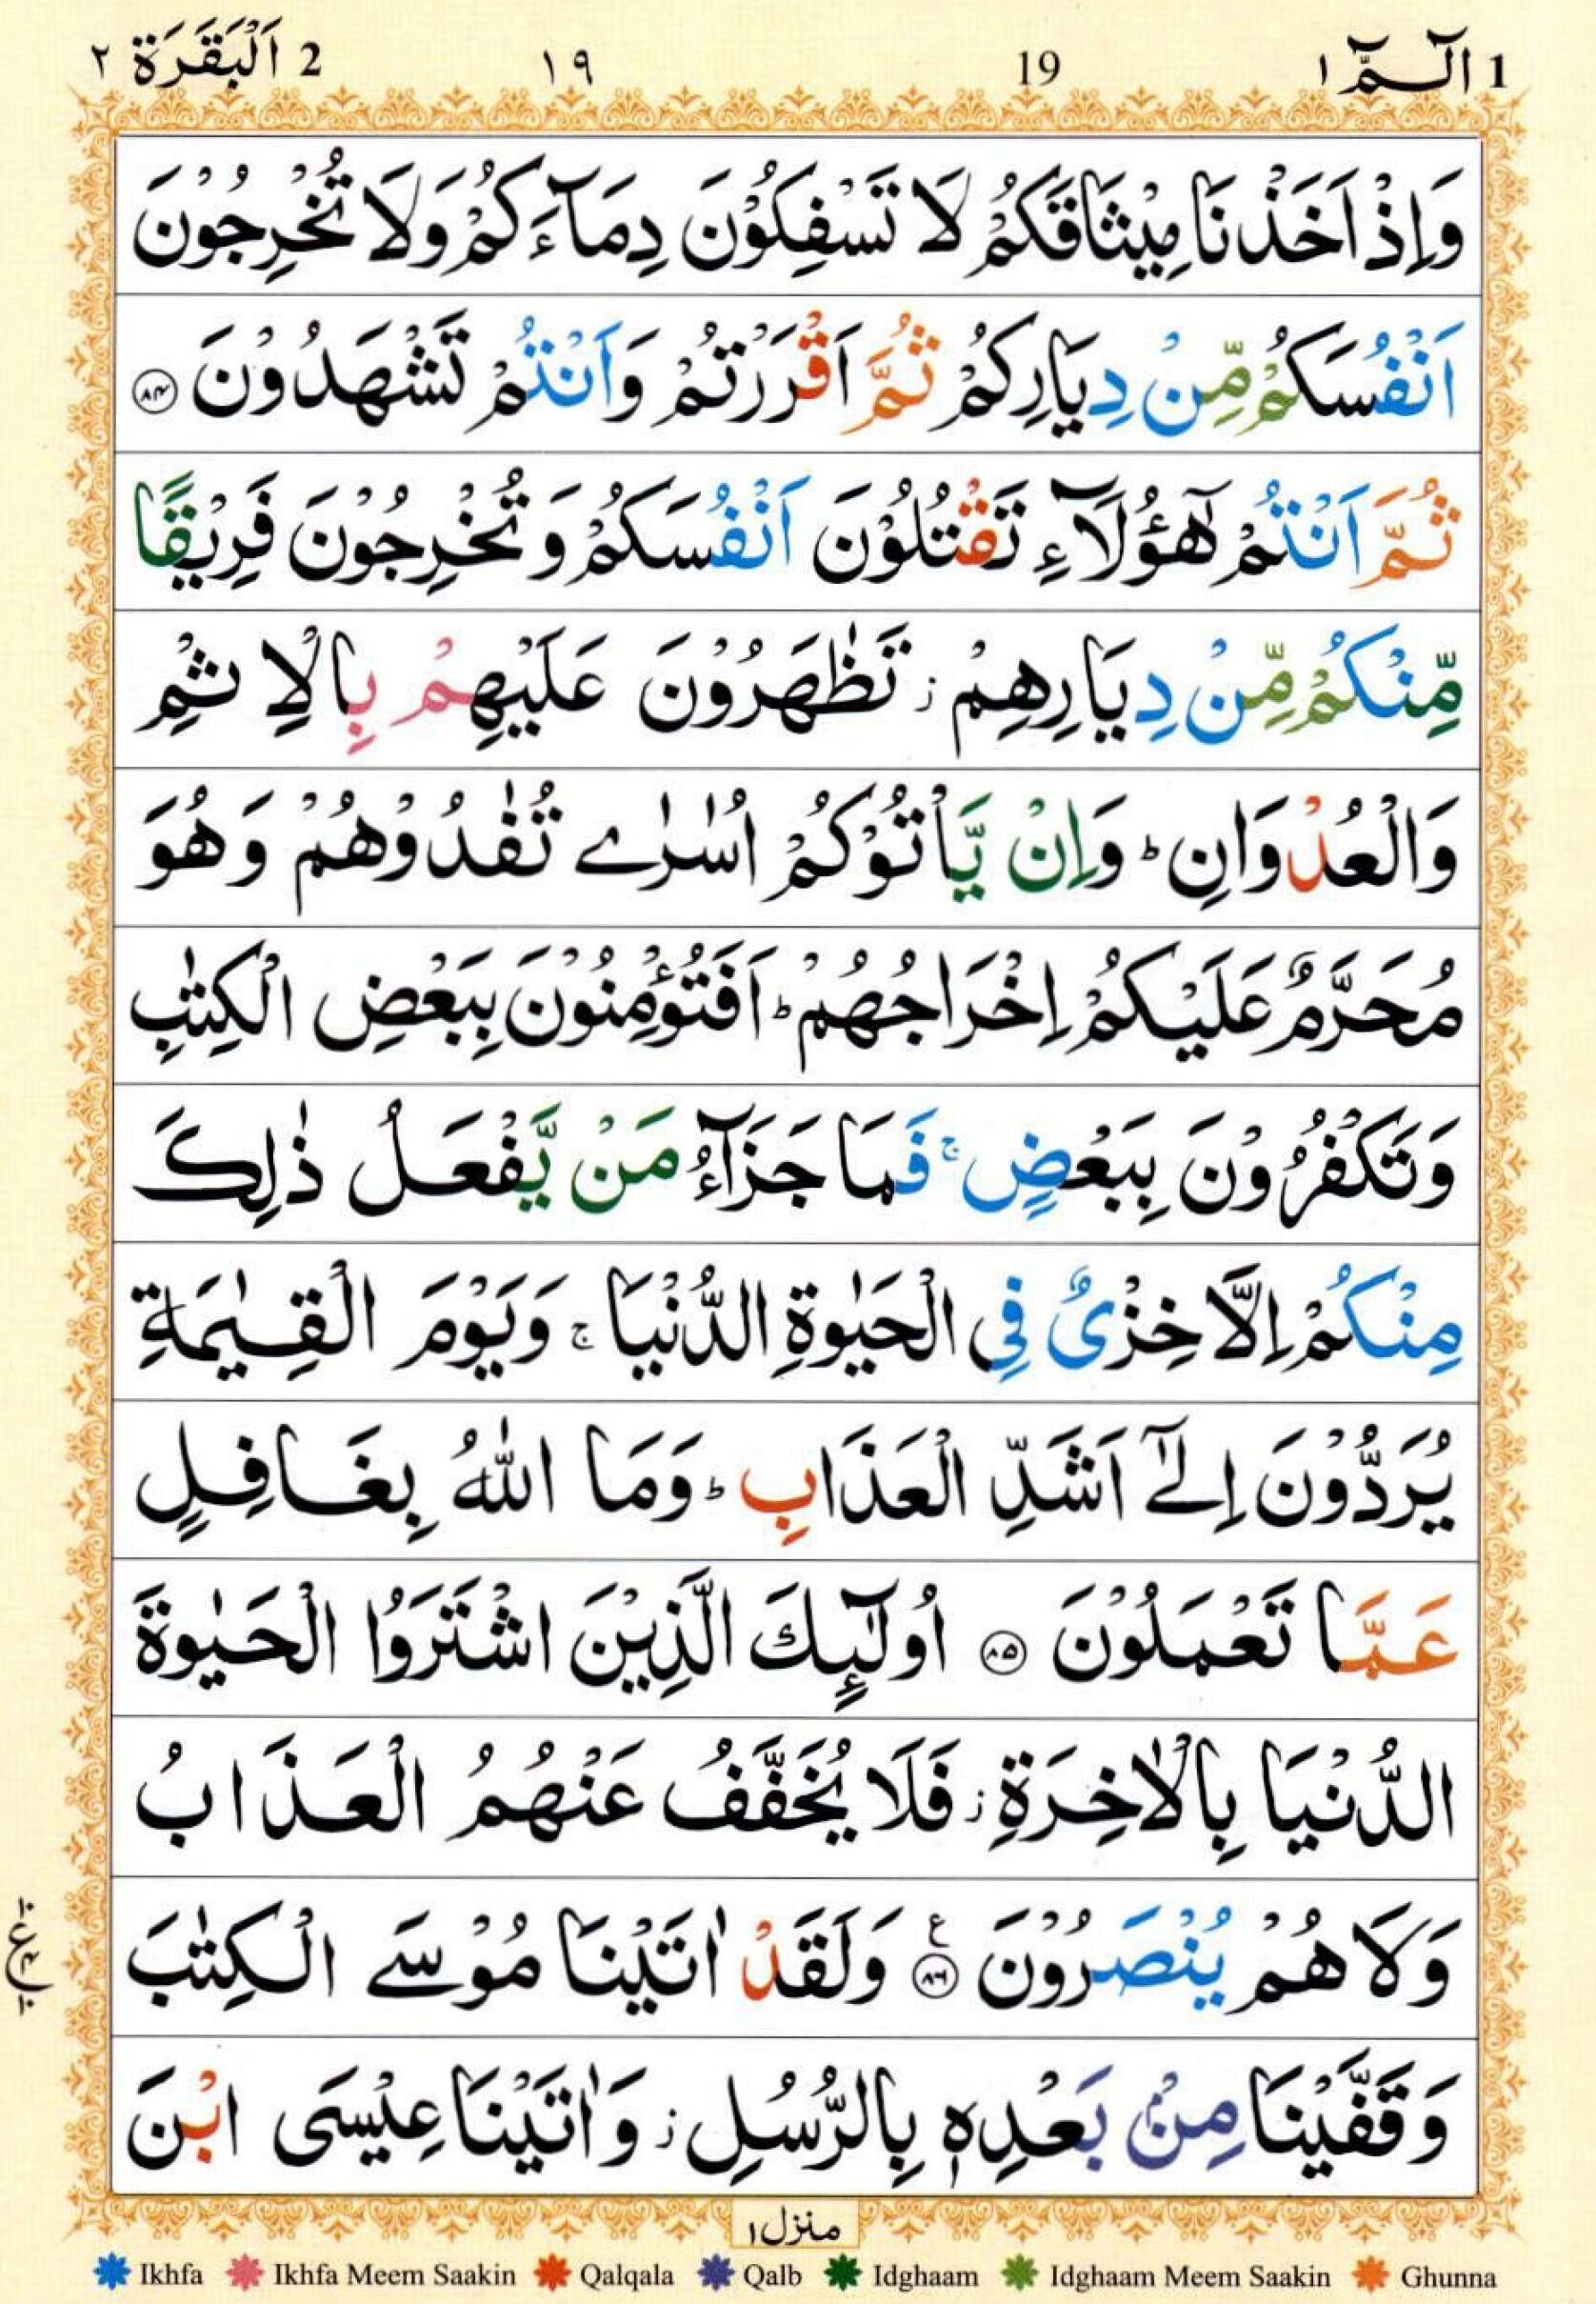 1 الٓـمّٓ ١ 19 ١٩ 2 اَلْبَقَرَة ٢
وَاِذْ اَخَذْنَا مِيْثَاقَكُمْ لَا تَسْفِكُوْنَ دِمَآءَكُمْ وَلَا تُخْرِجُوْنَ
اَنْفُسَكُمْ مِّنْ دِيَارِكُمْ ثُمَّ اَقْرَرْتُمْ وَاَنْتُمْ تَشْهَدُوْنَ ﴿۸۴﴾
ثُمَّ اَنْتُمْ هٰٓؤُلَآءِ تَقْتُلُوْنَ اَنْفُسَكُمْ وَ تُخْرِجُوْنَ فَرِيْقًا
مِّنْكُمْ مِّنْ دِيَارِهِمْ ز تَظٰهَرُوْنَ عَلَيْهِمْ بِالْاِثْمِ
وَالْعُدْوَانِ ؕ وَاِنْ يَّاْتُوْكُمْ اُسٰرٰے تُفٰدُوْهُمْ وَ هُوَ
مُحَرَّمٌ عَلَيْكُمْ اِخْرَاجُهُمْ ؕ اَفَتُؤْمِنُوْنَ بِبَعْضِ الْكِتٰبِ
وَتَكْفُرُوْنَ بِبَعْضٍ ۚ فَمَا جَزَآءُ مَنْ يَّفْعَلُ ذٰلِكَ
مِنْكُمْ اِلَّا خِزْىٌ فِى الْحَيٰوةِ الدُّنْيَا ۚ وَيَوْمَ الْقِيٰمَةِ
يُرَدُّوْنَ اِلٰٓے اَشَدِّ الْعَذَابِ ؕ وَمَا اللّٰهُ بِغَافِلٍ
عَمَّا تَعْمَلُوْنَ ﴿۸۵﴾ اُولٰٓئِكَ الَّذِيْنَ اشْتَرَوُا الْحَيٰوةَ
الدُّنْيَا بِالْاٰخِرَةِ ز فَلَا يُخَفَّفُ عَنْهُمُ الْعَذَابُ
وَلَا هُمْ يُنْصَرُوْنَ ﴿۸۶﴾ ع وَلَقَدْ اٰتَيْنَا مُوْسَے الْكِتٰبَ
وَ قَفَّيْنَا مِنْۢ بَعْدِهٖ بِالرُّسُلِ ز وَ اٰتَيْنَا عِيْسَى ابْنَ
منزل ۱
Ikhfa Ikhfa Meem Saakin Qalqala Qalb Idghaam Idghaam Meem Saakin Ghunna